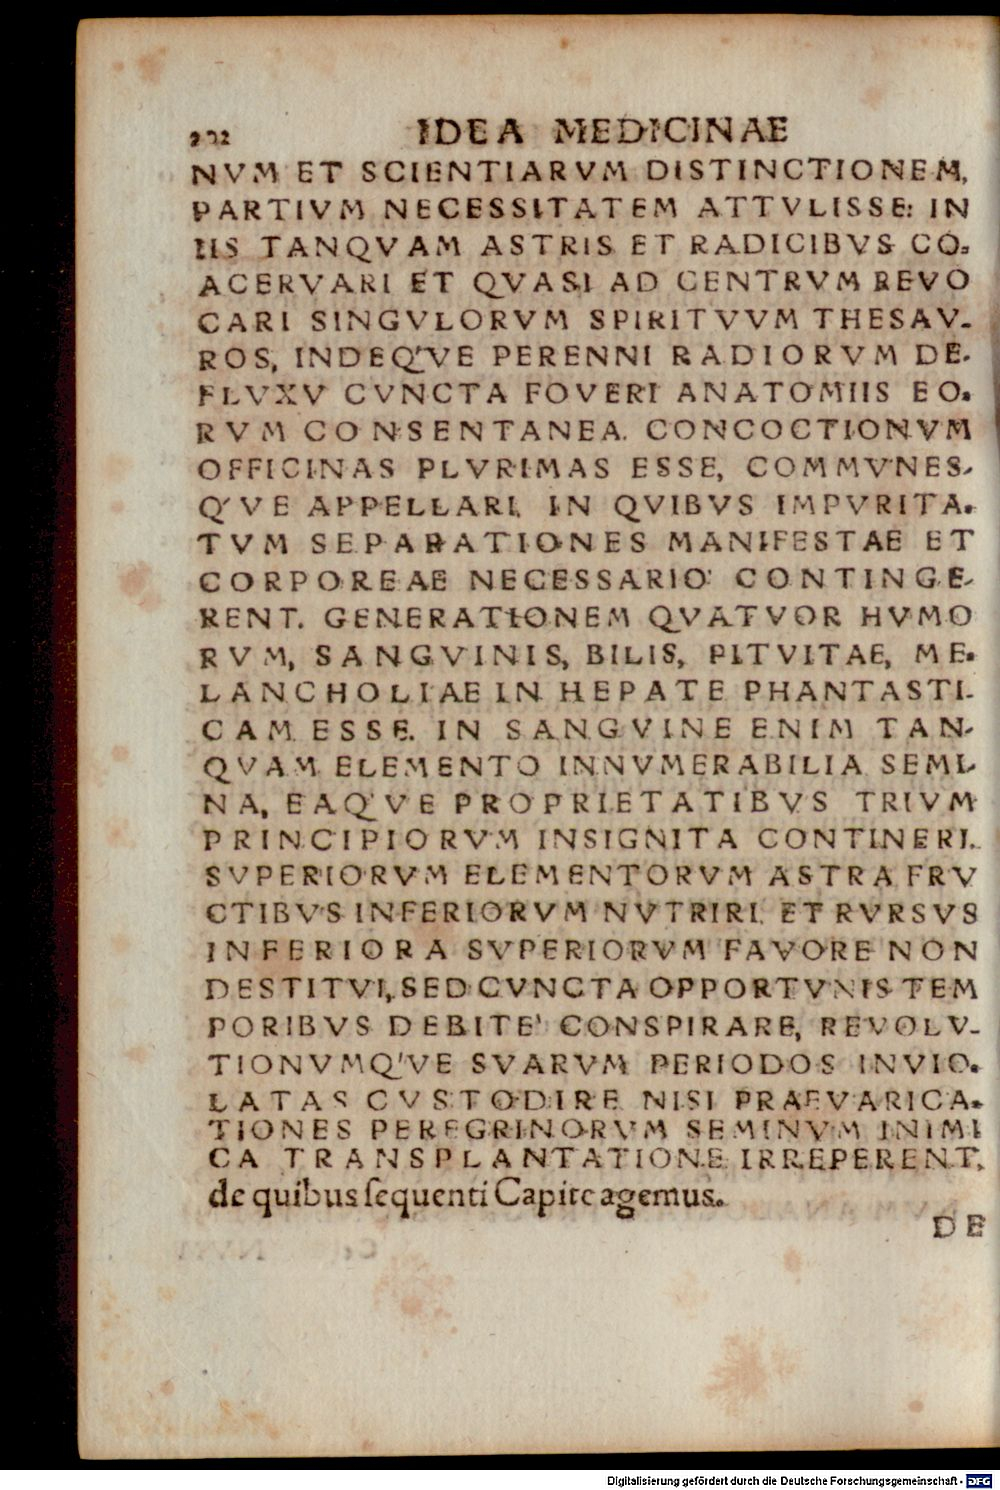 202 IDEA MEDICINAE
NVM ET SCIENTIARVM DISTINCTIONEM,
PARTIVM NECESSITATEM ATTVLISSE: IN
IIS TANQVAM ASTRIS ET RADICIBVS CO-
ACERVARI ET QVASI AD CENTRVM REVO
CARI SINGVLORVM SPIRITVVM THESAV-
ROS, INDEQ'VE PERENNI RADIORVM DE-
FLVXV CVNCTA FOVERI ANATOMIIS EO-
RVM CONSENTANEA. CONCOCTIONVM
OFFICINAS PLVRIMAS ESSE, COMMVNES-
Q'VE APPELLARI, IN QVIBVS IMPVRITA-
TVM SEPARATIONES MANIFESTAE ET
CORPOREAE NECESSARIO CONTINGE-
RENT. GENERATIONEM QVATVOR HVMO
RVM, SANGVINIS, BILIS, PITVITAE, ME-
LANCHOLIAE IN HEPATE PHANTASTI-
CAM ESSE. IN SANGVINE ENIM TAN-
QVAM ELEMENTO INNVMERABILIA SEMI-
NA, EAQ'VE PROPRIETATIBVS TRIVM
PRINCIPIORVM INSIGNITA CONTINERI.
SVPERIORVM ELEMENTORVM ASTRA FRV
CTIBVS INFERIORVM NVTRIRI, ET RVRSVS
INFERIORA SVPERIORVM FAVORE NON
DESTITVI, SED CVNCTA OPPORTVNIS TEM
PORIBVS DEBITE' CONSPIRARE, REVOLV-
TIONVMQ'VE SVARVM PERIODOS INVIO-
LATAS CVSTODIRE NISI PRAEVARICA-
TIONES PEREGRINORVM SEMINVM INIMI
CA TRANSPLANTATIONE IRREPERENT,
de quibus sequenti Capite agemus.
DE
Digitalisierung gefördert durch die Deutsche Forschungsgemeinschaft - DFG